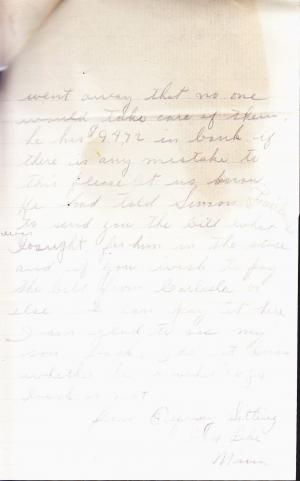 went away that no one
would take care of them.
he has $94.72 in bank if
there is any mistake to
this please let us know
He had told Simon
to send you the bill what
I bought for him in the store
and if you wish to pay
the bill from Carlisle or
else I can pay it here
I am glad to see my
son back, do not know
whether he
back or not
from